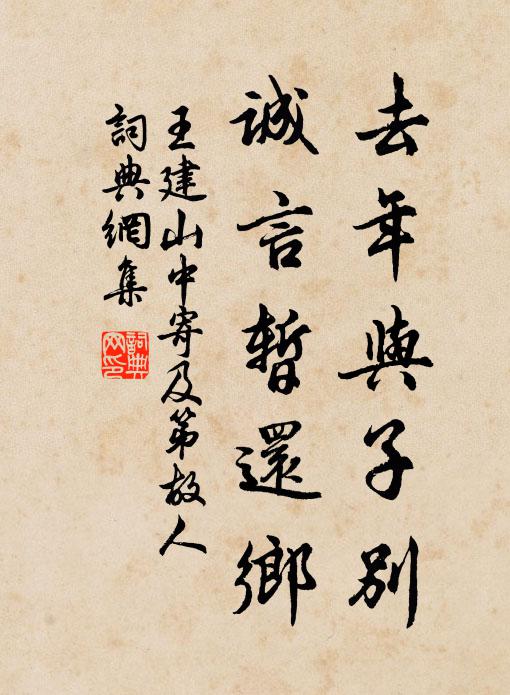 去年與子別
誠言暫還鄉
王建山中寄及第故人
詞典網集
詞典网印